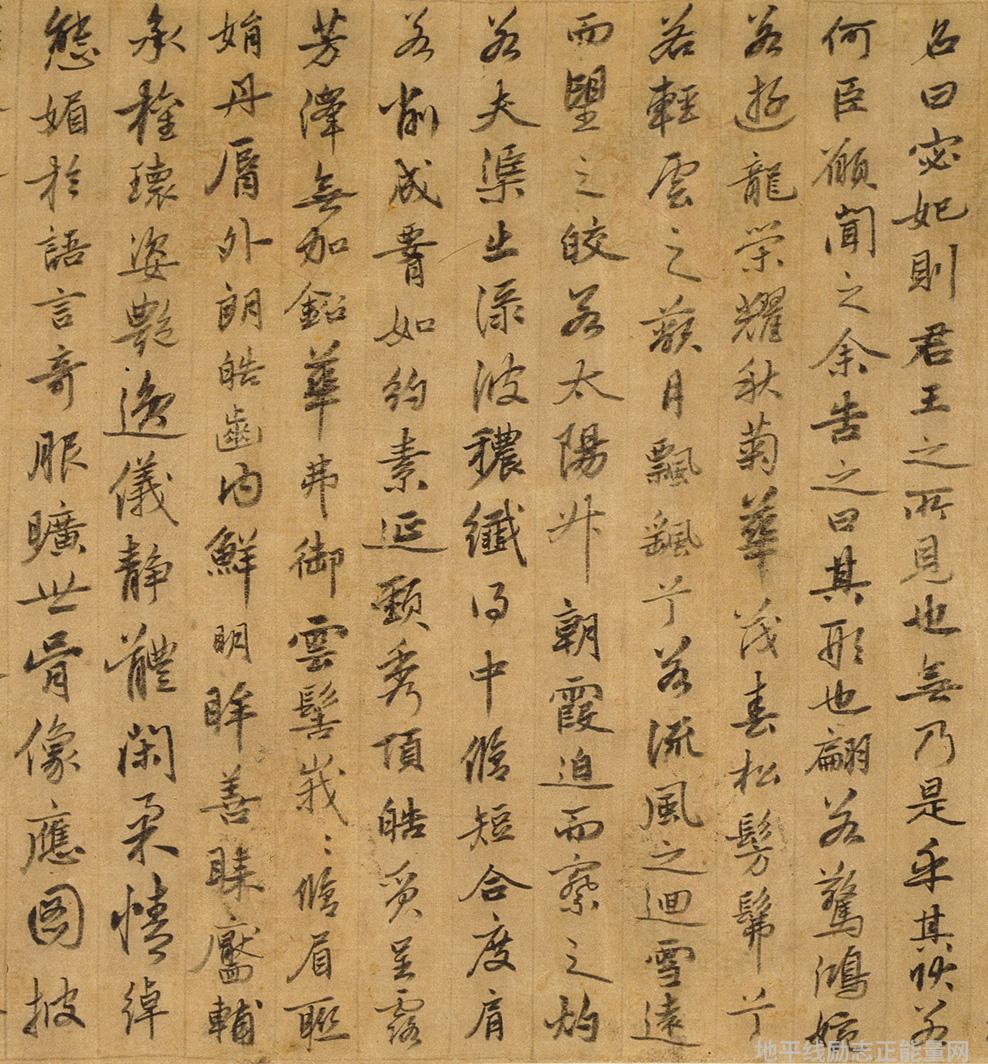 名曰宓妃則君王之所見也無乃是乎其狀若
何臣願聞之余告之曰其形也翩若驚鴻婉
若遊龍榮耀秋菊華茂春松髣髴兮
若輕雲之蔽月飄颻兮若流風之迴雪遠
而望之皎若太陽升朝霞迫而察之灼
若夫渠出淥波穠纖得中脩短合度肩
若削成腰如約素延頸秀項皓質呈露
芳澤無加鉛華弗御雲髻峩〻脩眉聯
娟丹脣外朗皓齒內鮮明眸善睞靨輔
承權瓌姿艷逸儀靜體閑柔情綽
態媚於語言奇服曠世骨像應圖披
地平线励志正能量网